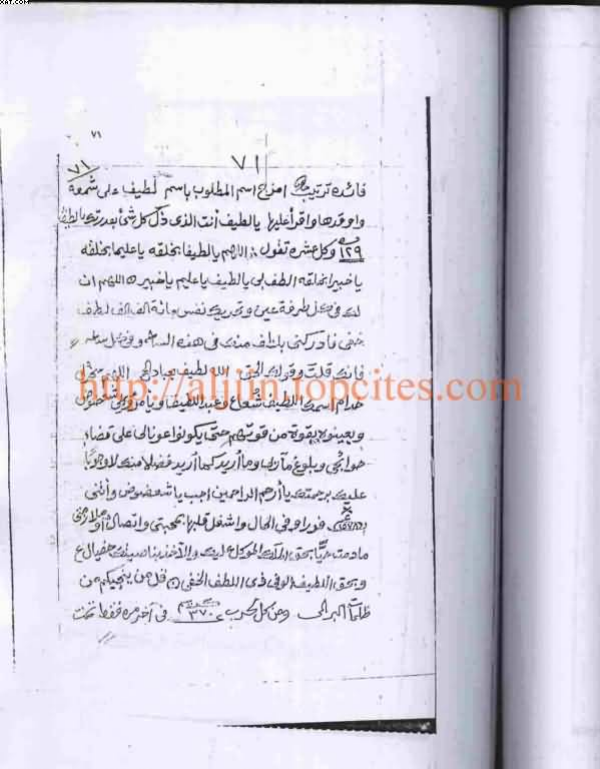 XAT.COM
٧١
٧١
٧١
فائدة ترتيب امزاج اسم المطلوب باسم لطيف على شمعة
واوقدها واقرأ عليها يالطيف أنت الذى ذل كل شئ بقدرتك يالطيف
١٢٩ وكل عشره تقول اللهم يالطيفا بخلقه ياعليما بخلقه
ياخبيرا بخلقه الطف بى يالطيف ياعليم ياخبير اللهم ان
لك فى كل طرفة عين وتحريك نفس مائة الف الف لطف
خفى فادركنى بلطف منك فى هذه
فانك قلت وقولك الحق الله لطيف بعباده اللهم سخر لى
http://aljinn.topcites.com
خدام اسمك اللطيف
ويعينونى بقوة من قوتهم حتى يكونوا عونا لى على قضاء
حوائجى وبلوغ مآربى وما أريد كما أريد فضلا منك لا وجوبا
عليك برحمتك يا أرحم الراحمين اجب يا شعضوض وأتنى
فورا وفى الحال واشغل قلبها بمحبتى واتصال
مادمت حيا بحق الملك الموكل عليك والآخذ بناصيتك
وبحق اللطيف الوفى ذى اللطف الخفى قل من ينجيكم من
ظلمات البر الى ومن كل كرب ٣٧٠ فى آخر مره فقط تحت